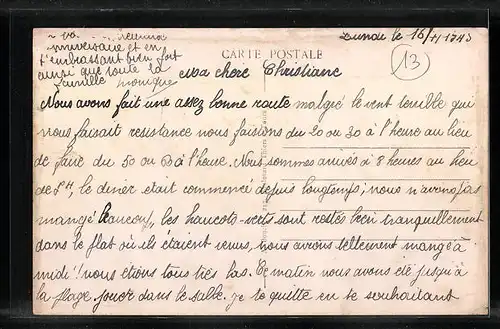 Lundi le 16/
13
CARTE POSTALE
anniversaire et en
t'embrassant bien fort
ainsi que toute la
famille monique
ma chere Christiane
Nous avons fait une assez bonne route malgré le vent terrible qui
nous faisait resistance nous faisions du 20 ou 30 à l'heure au lieu
de faire du 50 ou 60 à l'heure. Nous sommes arrivés à 8 heures au lieu
de , le diner etait commencé depuis longtemps; nous n'avons pas
mangé beaucoup, les haricots-verts sont restés bien tranquillement
dans le plat où ils étaient venus, nous avions tellement mangé à
midi! nous étions tous très las. Ce matin nous avons été jusqu'à
la plage jouer dans le sable. je te quitte en te souhaitant